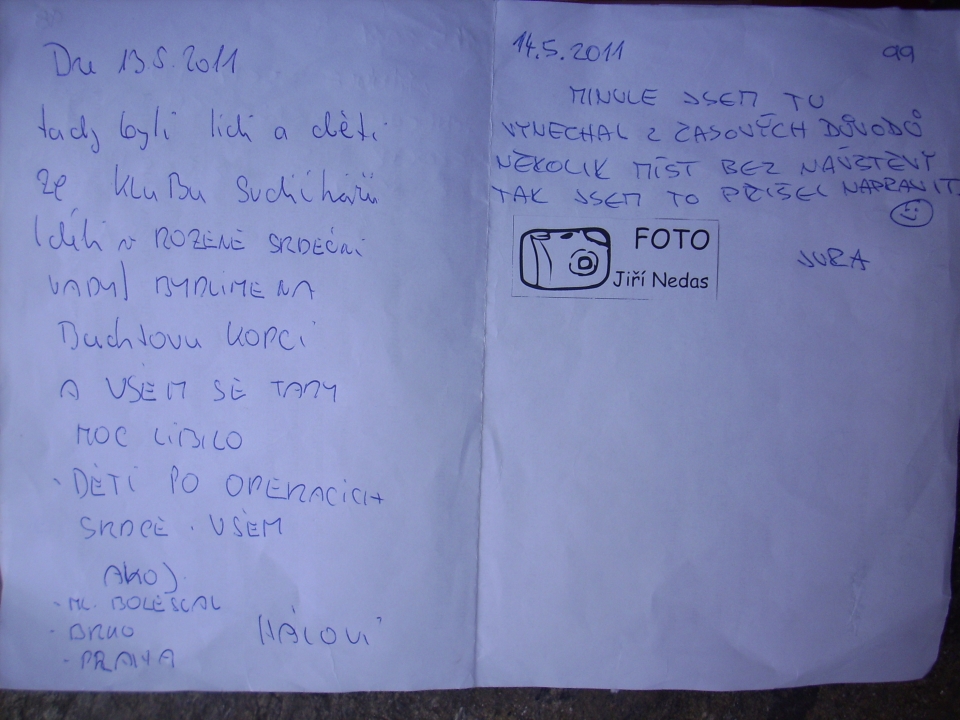 Dne 13.5.2011
tady byli lidi a děti
ze kluBu
ROZENE SRDEČNI
VADY) BYDLIME NA
Buchtovu KOPCI
A VŠEM SE TADY
MOC LÍBILO
- DĚTI PO OPERACÍCH
SRDCE. VŠEM
AHOJ.
- ML. BOLESLAV
- BRNO
- PRAHA
HÁLOVI
14.5.2011 99
MINULE JSEM TU
VYNECHAL Z ČASOVÝCH DŮVODŮ
NĚKOLIK MÍST BEZ NÁVŠTĚVY
TAK JSEM TO PŘIŠEL NAPRAVIT.
JURA
FOTO
Jiří Nedas